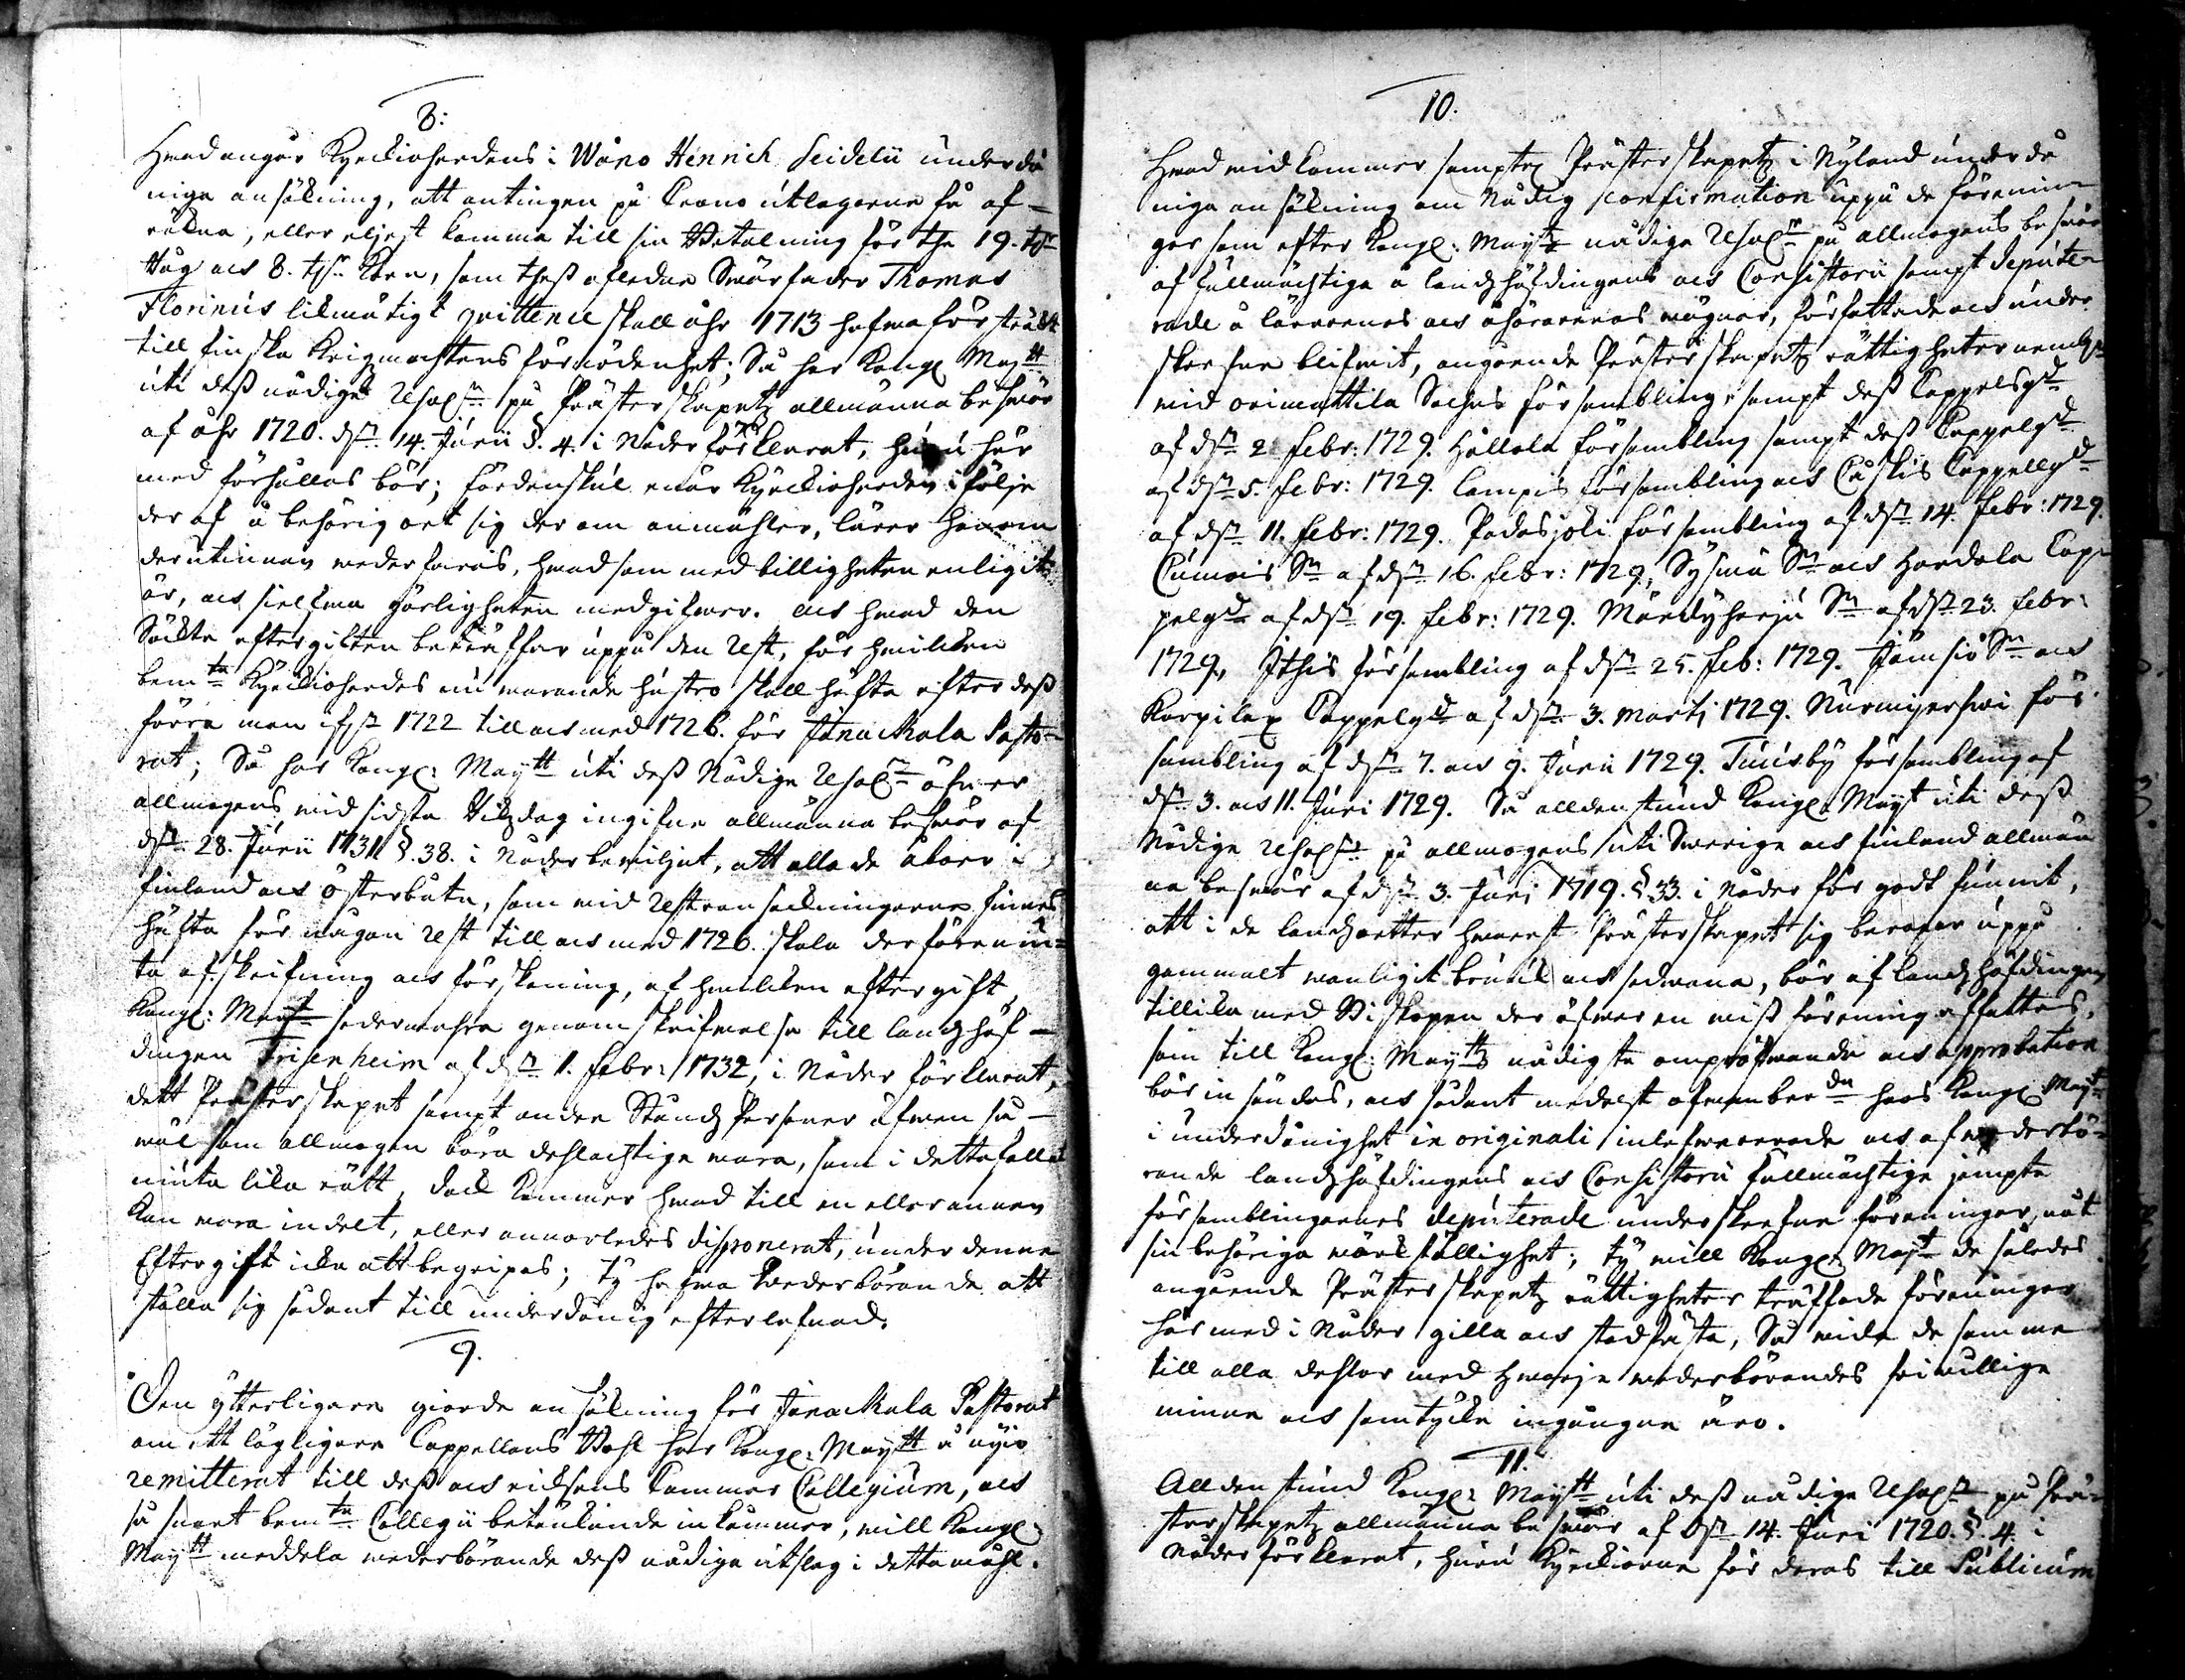 8:
Hwad angår Kyrckioherdens i Wåno Henrich Seidelii underdå
niga ansökning, att antingen på Crono utlagorne få af-
räkna, eller eljest komma till sin Betalning för the 19. t:r
Råg och 8. t:r Korn, som thess afledne Swärfader Thomas
Florinus likmätigt qvittence skall åhr 1713 hafwa försträckt
till finska Krigzmachtens förnödenhet; Så har Kongl Maj:tt
uti dess nådiga Resol:n på Prästerskapetz allmänna beswär
af åhr 1720. d: 14. Junii §. 4. i Nåder förklarat, huru här
med förhållas bör; fördenskul enär Kyrckioherden i följe
der af å behörig ort sig der om anmähler, lärer honom
derutinnan wederfaras, hwad som med billigheten enligit
är, och sielfwa görligheten medgifwer. och hwad den
Sökte eftergiften beträffar uppå den Rest, för hwilken
bem:te Kyrckioherdes nu warande hustro skall häfta efter dess
förra man ifr: 1722 till och med 1726. för Janackala Pasto-
rat; Så har Kongl: Maij:tt uti dess Nådige Resol:n öfwer
allmogens wid sidsta Rikzdag ingifne allmänna beswär af
d: 28. Junii 1731 §. 38. i Nåder bewiljat, att alla de åboer i
finland och Österbotn, som wid Restransakningarne finnes
häfta för någon Rest till och med 1726. skola derföre niu-
ta afskrifning och förskoning, af hwilken eftergift
Kongl: Maij:t sedermehra genom skrifwelse till landzhöf-
dingen Frisenheim af d: 1. febr: 1732, i Nåder förklarat,
dett Prästerskapet sampt andre Stånds Personer äfwen så-
wäl som allmogen böra dehlachtige wara, som i detta fallet
niuta lika rätt, dock kommer hwad till en eller annan
kan wara indelt, eller annorledes disponerat, under denne
Eftergift icke att begripas; ty hafwa wederbörande att
ställa sig sådant till underdånig efterlefnad.
9.
Den ytterligare giorde ansökning för Janackala Pastorat
om ett lägligare Cappellans Bohl har Kongl: Maij:tt å nyio
remitterat till dess och rikssens Cammar Collegium, och
så snart bem:te Collegii betänkande inkommer, will Kongl:
Maij:tt meddela wederbörande dess nådige utslag i detta måhl.
10.
Hwad widkommer samptel Prästerskapetz i Nyland underdå
niga ansökning om Nådig confirmation uppå de förenin-
gar som efter Kongl: Maij:ttz nådige Resol:n på allmogens beswär
af fullmächtige å landzhöfdingens och Consistorii sampt depute-
rade å lärarenes och åhörarenas wägnar, författade och under
skrefne blifwit, angående Prästerskapetz rättigheter nembl:n
wid orimattila Sochns försambling, sampt dess Cappelsg:d
af d: 2 febr: 1729. Hållola försambling sampt dess Cappelg:d
af d: 5. febr: 1729. Lampis försambling och Cåskis Cappellg:d
af d: 11. febr: 1729. Padasjoki försambling af d: 14. febr: 1729.
Cumois S:n af d: 16. febr: 1729, Sysmä S:n och Hardola Cap-
pelg:d af d: 19. febr: 1729. Mäntyharju S:n af d: 23. febr:
1729, Ithis försambling af d: 25. feb: 1729. Jämsiö S:n och
Korpilax Cappelg:d af d: 3. Martj 1729. Nurmijerfwi för-
sambling af d: 7. och 9. Junii 1729. Tuusby försambling af
d: 3. och 11. Juni 1729. Så alldenstund Kongl: Maij:t uti dess
Nådige Resol:n på allmogens uti Swerige och finland allmän
na beswär af d: 3. Juni 1719. §. 33. i Nåder för godt funnit,
att i de landzorter hwarest Prästerskapet sig beropar uppå
gammalt wanligit bruk och sedwana, bör af landzhöfdingen
tillika med Biskopen der öfwer en wiss förening affattas,
som till Kongl: Maij:ttz nådigste ompröfwande och approbation
bör insändas, och sådant medelst ofwanber:de hoos Kongl Maij:t
i underdånighet in originali inlefwererade och af wederbö-
rande landzhöfdingens och Consistorii fullmächtige jempte
församblingarnes deputerade underskrefne föreningar, nåt
sin behöriga wärckställighet; ty will Kongl: Maij:t de således
angående Prästerskapetz rättigheter träffade föreningar
här med i Nåder gilla och stadfästa, Så wida de samme
till alla dehlar med hwarje wederbörandes friwillige
minne och samtycke ingångne äro.
11.
Alldenstund Kongl: Maij:tt uti dess nådige Resol:n på Prä-
sterskapetz allmänna beswär af d: 14. Juni 1720. §. 4. i
Nåder förklarat, huru Kyrckiorne för deras till Publicum